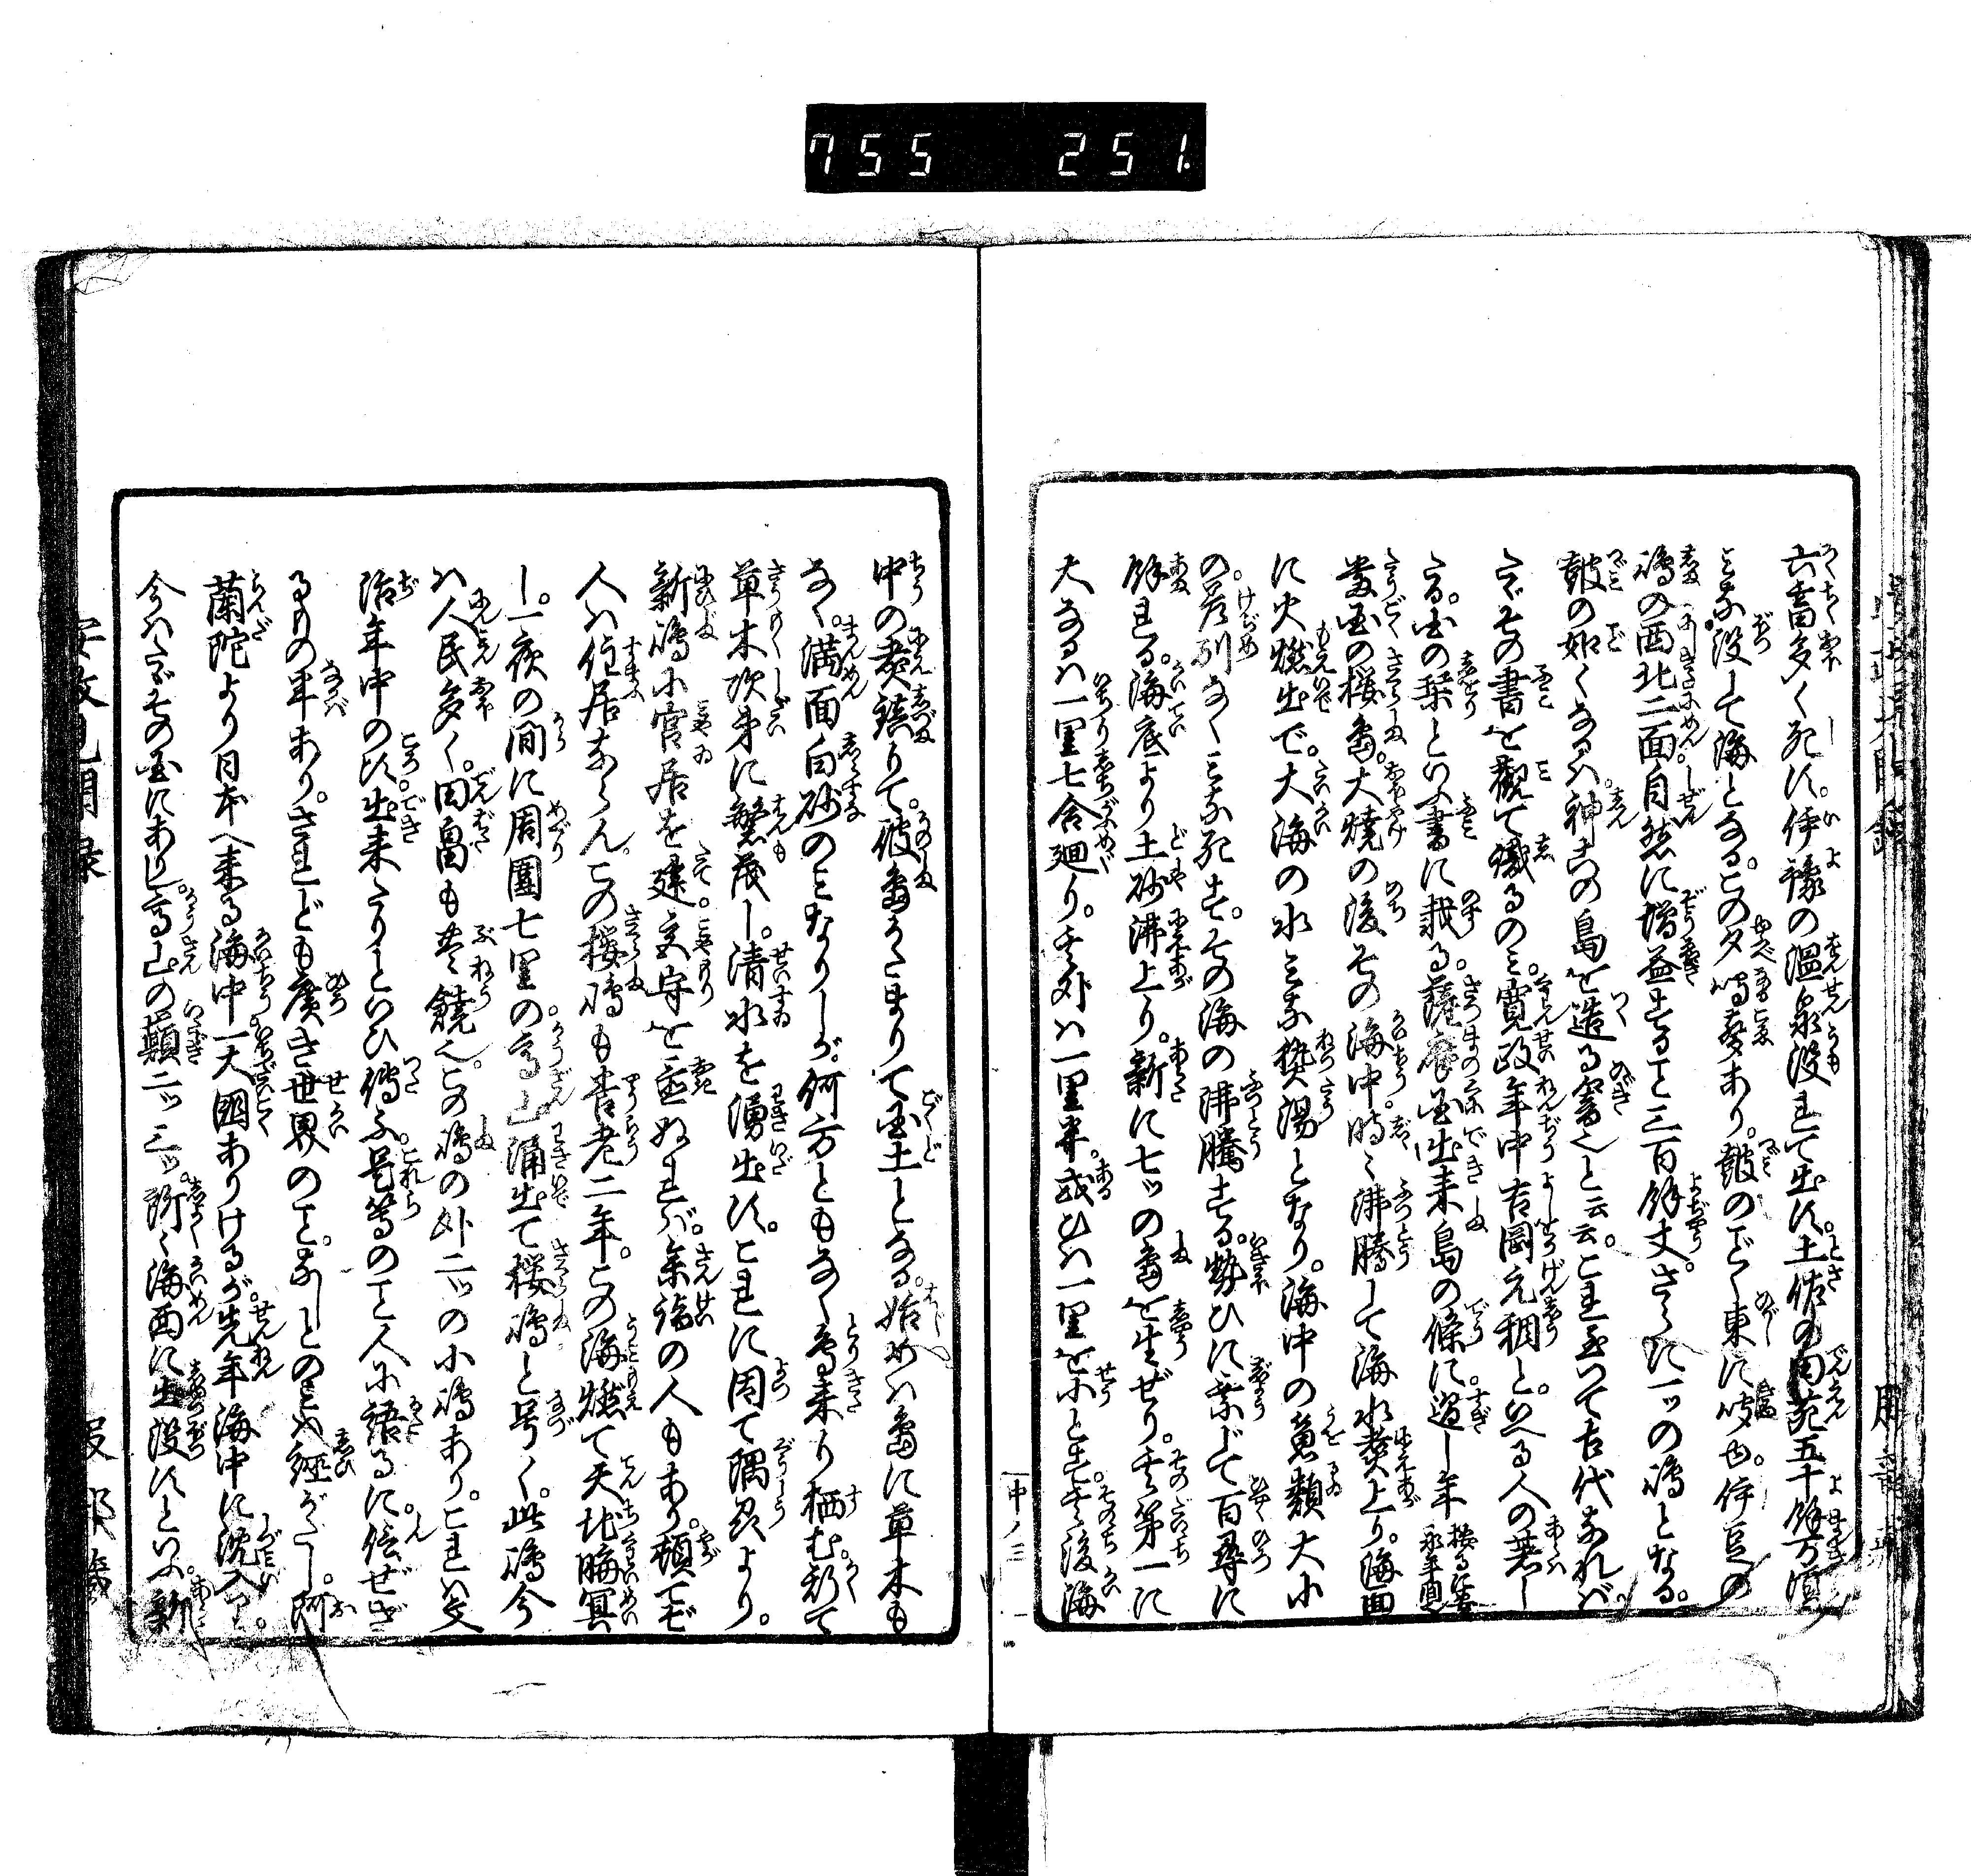 755 251.
六畜多く死す。伊豫の温泉没れて出ず。土佐の田苑五十餘万頃
みな没して海となる。この夕鳴聲あり。皷のごとく東に吼ゆ。伊豆の
嶋の西北二面。自然に増益すること三百餘丈。さらに一ツの嶋となる。
皷の如くなるハ。神この島を造る響也と云云。これ至つて古代なれバ。
たゞその書を観て識るのミ。寛政年中吉岡元稠と。いへる人の著し
たる。国の栞といふ書に載る。薩摩国出来島の條に。過し年
按る安永年間
當国の桜島。大燒の後その海中。時々沸騰して海水煮上り。海面
に火燃出で。大海の水みな熱湯となり。海中の魚類大小
の差別なくみな死す。その海の沸騰する。勢ひに乗じて百尋に
餘れる。海底より土砂沸上り。新に七ツの島を生ぜり。その第一に
大なるハ一里七合廻り。その外ハ一里半。或ひハ一里を小とす。その後海
中ノ三
中の煮鎮りて。彼島かたまりて国土となる。始めハ島に草木も
なく。満面白砂のミなりしが。何方ともなく鳥来り栖む。都て
草木次第に繁茂し。清水を湧出す。これに因て隅州より。
新嶋に宮居を建。宮守を置ぬれバ。参詣の人もあり。頓てぞ
人ハ住居ならん。この桜嶋も養老二年。この海燃て天地瞑冥
し。一夜の間に周圍七里の。高山涌出て桜嶋と号く。此嶋今
ハ人民多く。田畠も豊饒也。この嶋の外二ツの小嶋あり。これハ文
治年中の比。出来たりといひ傳ふ。是等のこと人に語るに。信ぜざ
るもの半あり。されども廣き世界のこと。なしとのミも強がたし。阿
蘭陀より日本へ来る海中。一大國ありけるが。先年海中に沈入り。
今ハたゞその国にありし。高山の巓二ツ三ツ。所々海面に出没すといふ。新
安政見聞録